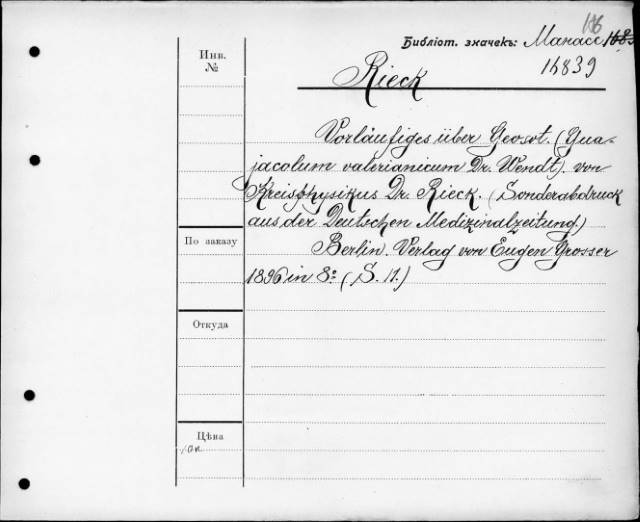 116
Библіот. значекъ: Манасс.
14839
Инв.
№
Rieck
Vorläufiges über Geosot. (Gua-
jacolum valerianicum Dr. Wendt). von
Kreisphysikus Dr. Rieck. (Sonderabdruck
aus der Deutschen Medizinalzeitung.)
По заказу
Berlin. Verlag von Eugen Grosser
1896 in 8º (S. 11.)
Откуда
Цѣна